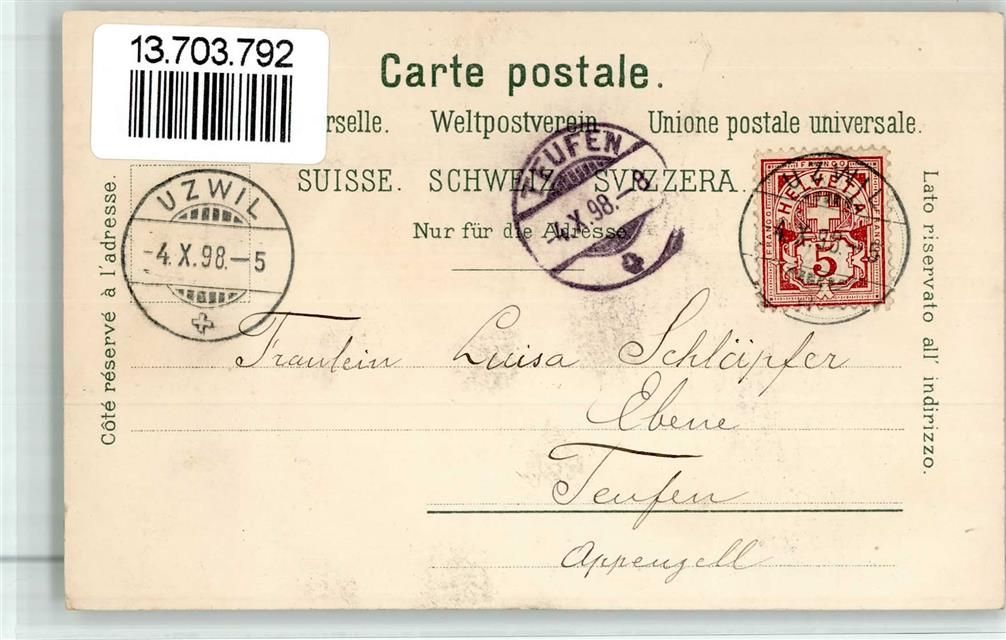 13.703.792
Carte postale.
rselle. Weltpostverein Unione postale universale.
SUISSE. SCHWEIZ. SVIZZERA.
Nur für die Adresse
Côté réservé à l'adresse.
Lato riservato all' indirizzo.
UZWIL
-4.X.98.-5
TEUFEN
-4.X.98.-8
UZWIL
4.X.98.-5
FRANCO
HELVETIA
FRANCO
FRANCO
5
Fräulein Luisa Schläpfer
Ebene
Teufen
Appenzell